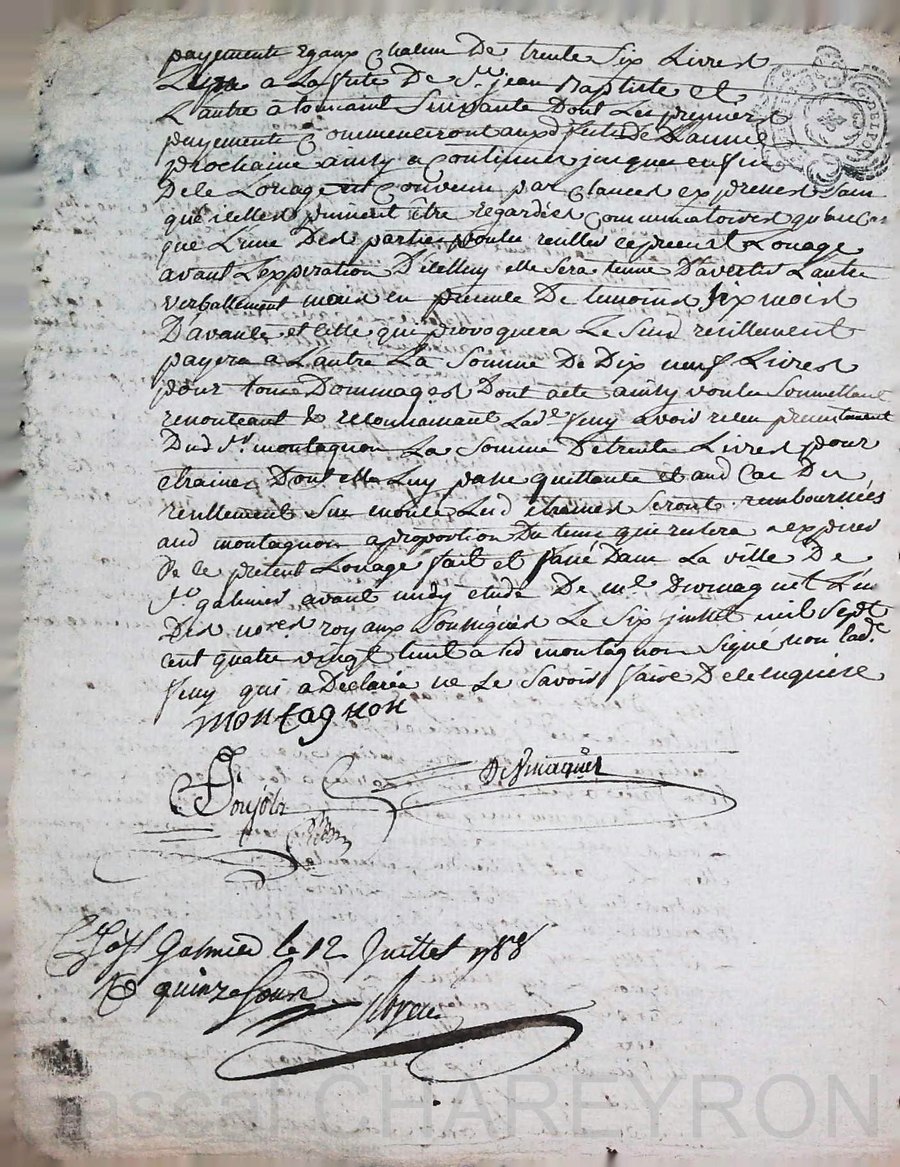 payements egaux chacun de trente six Livres
L'un a La fete De St. jean Baptiste et
L'autre à toussaint Suivante Dont Les premiers
payements Commenceront auxd. fetes de L'année
prochaine ainsy a Continuer jusques en fin
De ce Louage et Convenu par Clauses expresses sans
que icelles puissent être regardées Comminatoires qu'en Cas
que L'une Des parties voulu resilier ce present Louage
avant L'expiration D'icelluy elle sera tenue D'avertir L'autre
verballement mais en presence De temoins six mois
D'avance et celle qui provoquera Le Susd. resillement
payera a L'autre La somme De Dix neuf Livres
pour tous Dommages Dont acte ainsy voulu Soumettant
renonceant & reconnaissant Lade. feny avoir recu presentement
Dud Sr. montagnon La Somme De trente Livres pour
etraines Dont elle Luy passe quittance et aud Cas De
resillement Sur Lesd etraines Seront remboursées
aud montagnon a proportion Du tems qui restera a expirer
De ce present Louage fait et passé Dans La ville De
St. galmier avant midy etude De me. Desmaquet L'un
Des nores. royaux Soussignés Le Six juillet mil Sept
cent quatre vingt huit a led montagnon Signé non lade.
feny qui a Déclarée ne Le Savoir faire De ce enquise
montagnon
Desmaquet
Poujola
St Galmier le 12 Juillet 1788
quinze sous